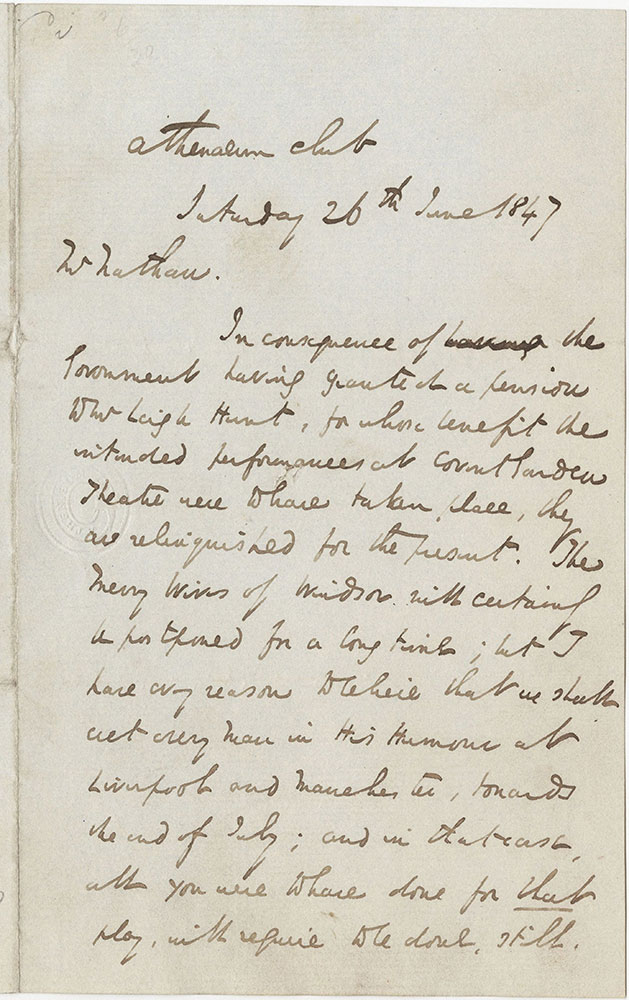 Athenaeum Club
Saturday 26th June 1847
Mr Nathan.
In consequence of having the
Government having granted a pension
to Mr Leigh Hunt, for whose benefit the
intended performances at Covent Garden
Theatre were to have taken place, they
are relinquished for the present. The
Merry Wives of Windsor will certainly
be postponed for a long time; but I
have every reason to believe that we shall
act Every Man in His Humour at
Liverpool and Manchester, towards
the end of July; and in that case,
all you were to have done for that
play, will require to be done, still.